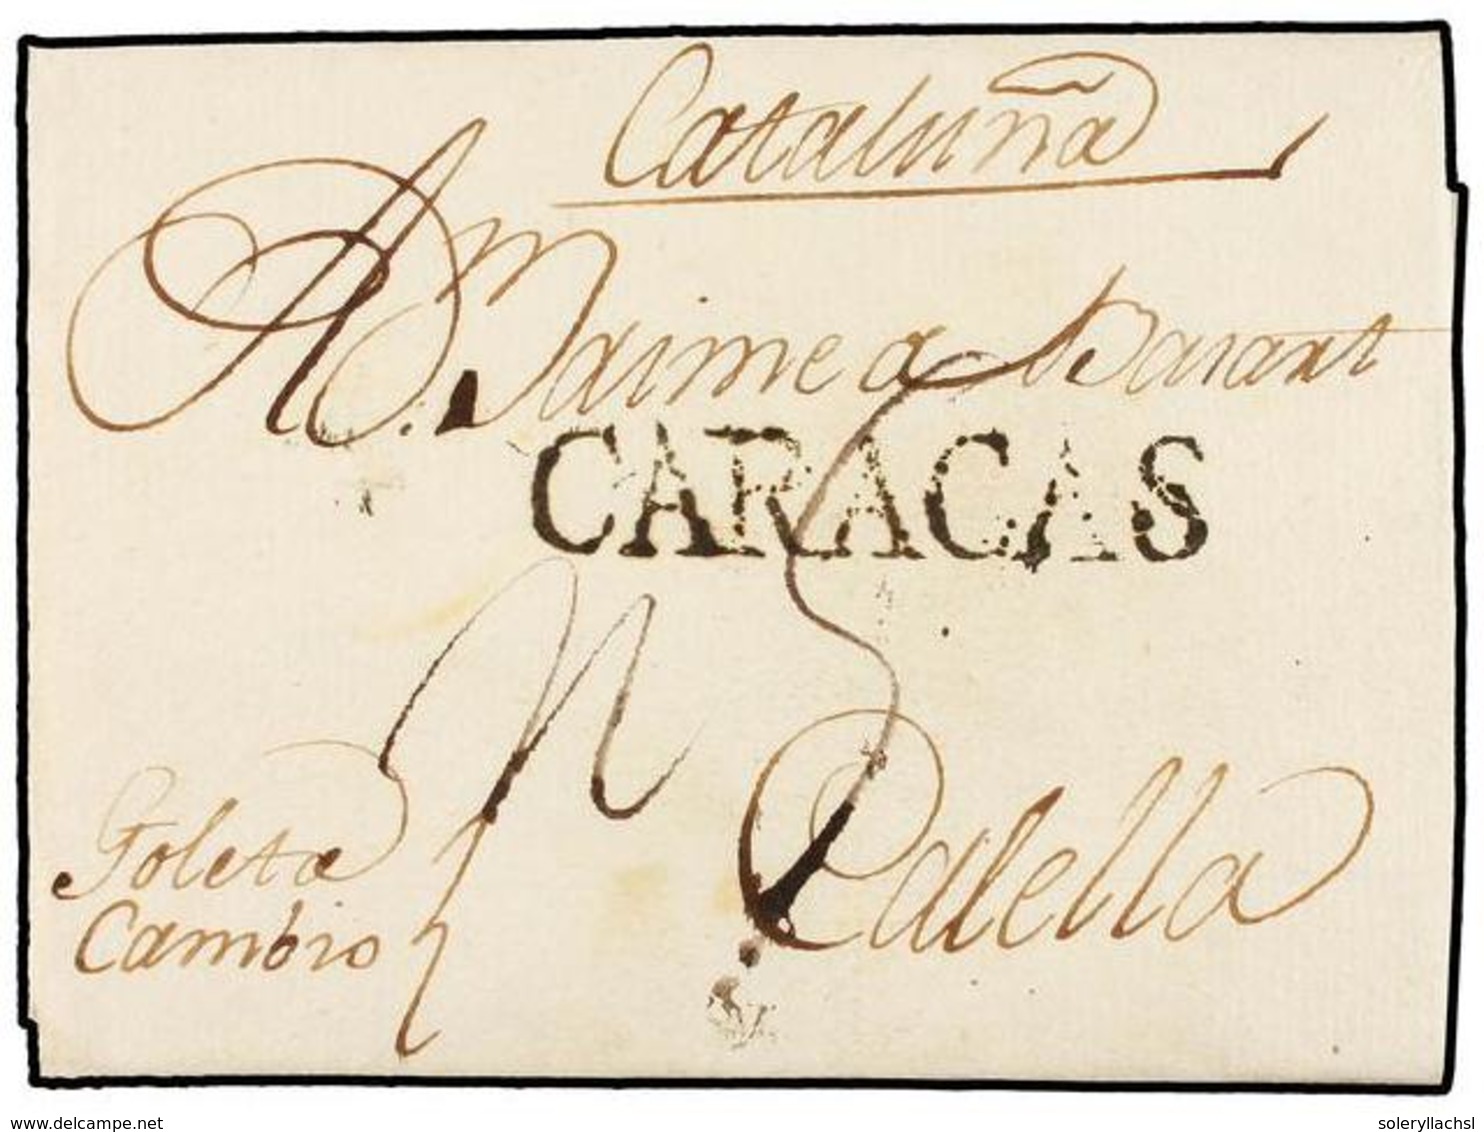 Cataluña
A Dn Jaime a Barant
CARACAS
Goleta
Cambio
Calella
www.delcampe.net
soleryllachsl